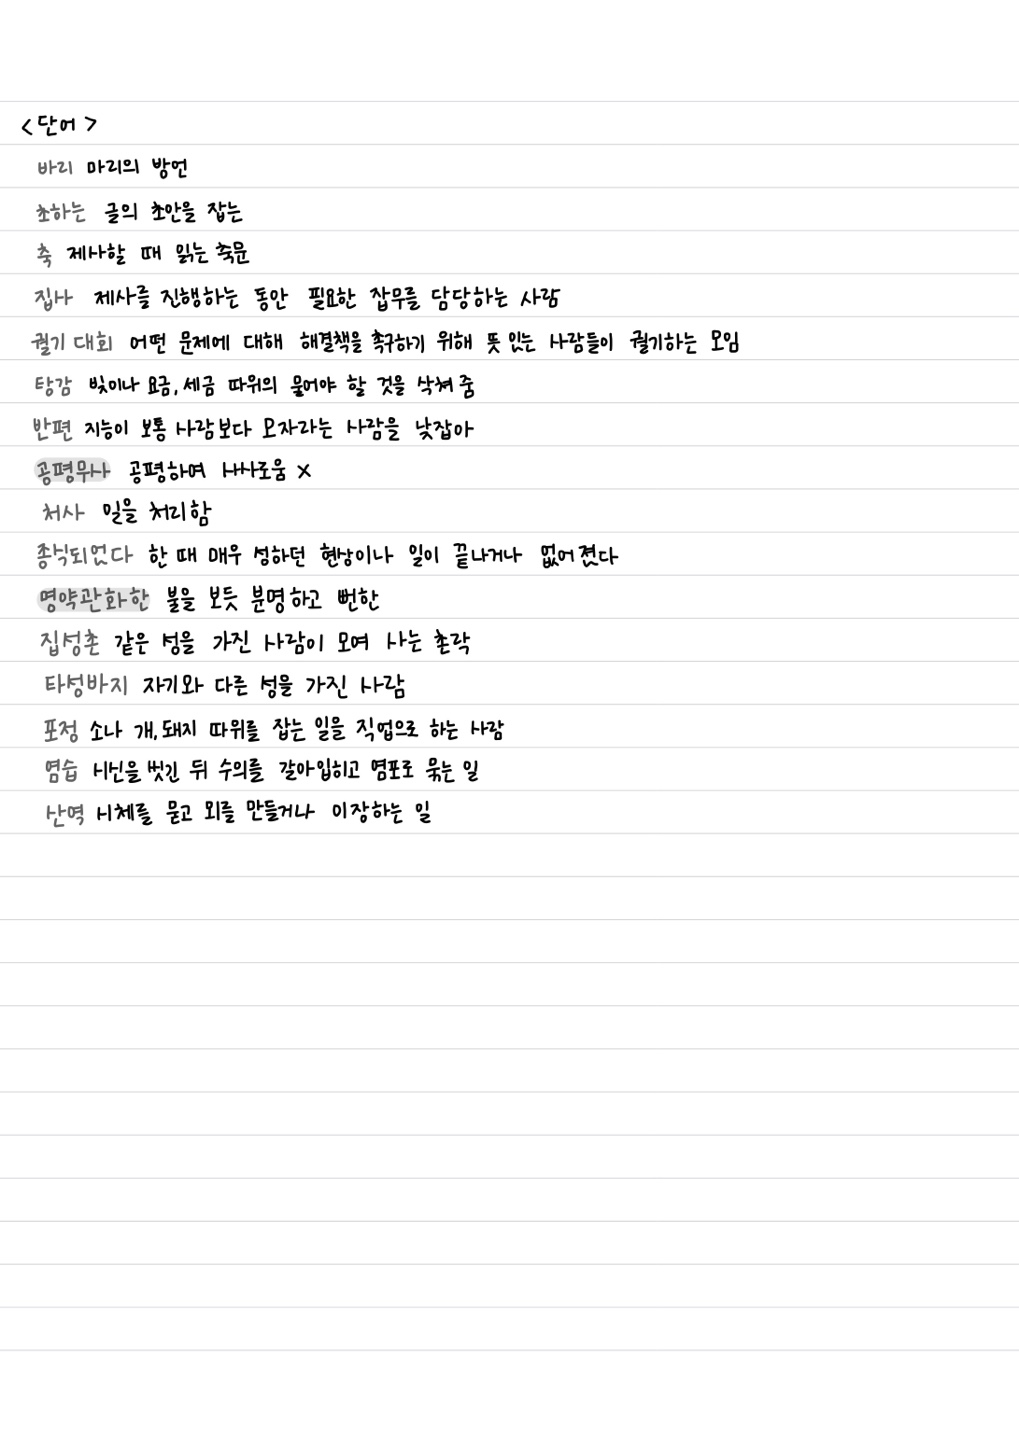 <단어>
바리 마리의 방언
초하는 글의 초안을 잡는
축 제사할 때 읽는 축문
집사 제사를 진행하는 동안 필요한 잡무를 담당하는 사람
궐기 대회 어떤 문제에 대해 해결책을 촉구하기 위해 뜻 있는 사람들이 궐기하는 모임
탕감 빚이나 요금, 세금 따위의 물어야 할 것을 삭쳐 줌
반편 지능이 보통 사람보다 모자라는 사람을 낮잡아
공평무사 공평하여 사사로움 X
처사 일을 처리함
종식되었다 한 때 매우 성하던 현상이나 일이 끝나거나 없어졌다
명약관화한 불을 보듯 분명하고 뻔한
집성촌 같은 성을 가진 사람이 모여 사는 촌락
타성바지 자기와 다른 성을 가진 사람
포정 소나 개, 돼지 따위를 잡는 일을 직업으로 하는 사람
염습 시신을 씻긴 뒤 수의를 갈아입히고 염포로 묶는 일
산역 시체를 묻고 뫼를 만들거나 이장하는 일